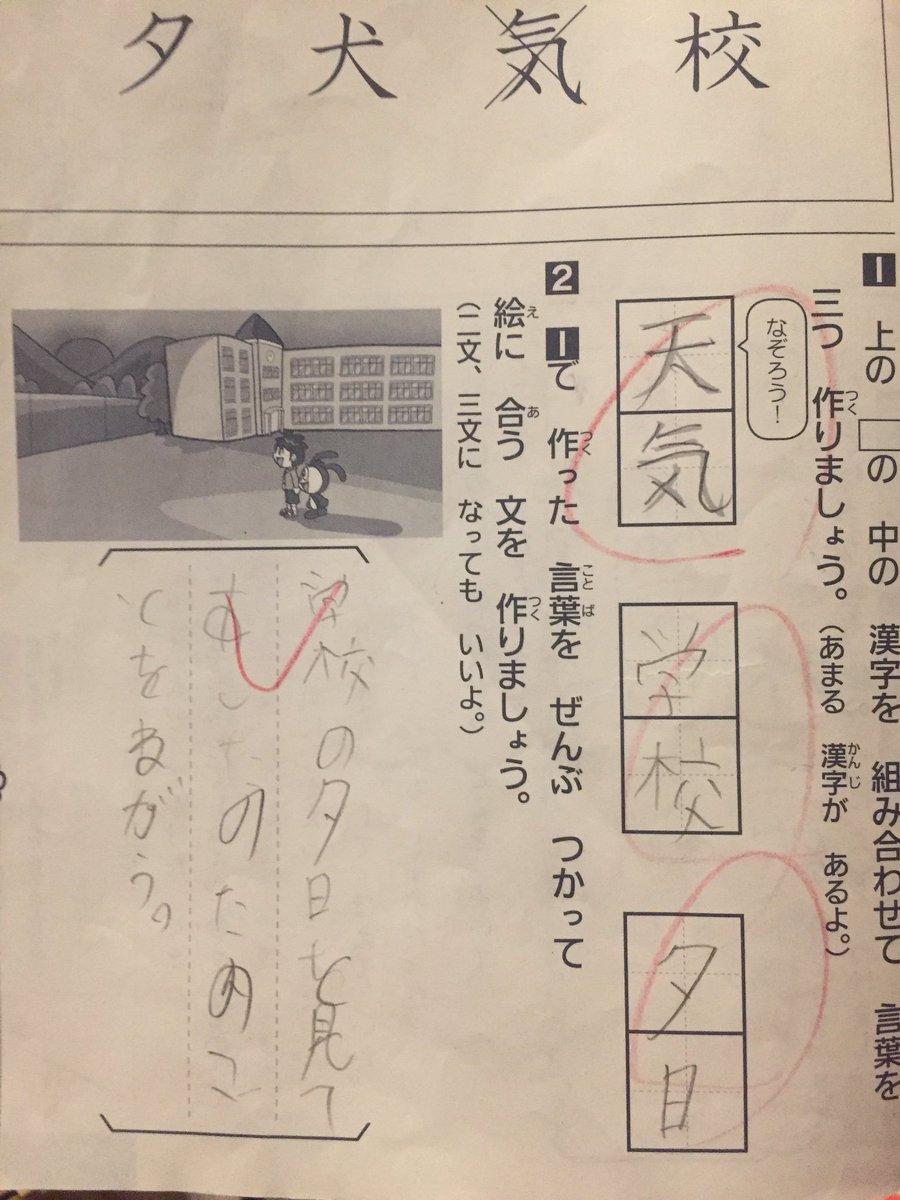 校
気
犬
夕
1 上の □の 中の 漢字を 組み合わせて 言葉を
三つ 作りましょう。(あまる 漢字が あるよ。)
つく
かんじ
なぞろう!
天気
学校
夕日
2 1で 作った 言葉を ぜんぶ つかって
つく
ことば
絵に 合う 文を 作りましょう。
え
あ
つく
(二文、三文に なっても いいよ。)
学校の夕日を見て
したのたのこ
とをねがう。